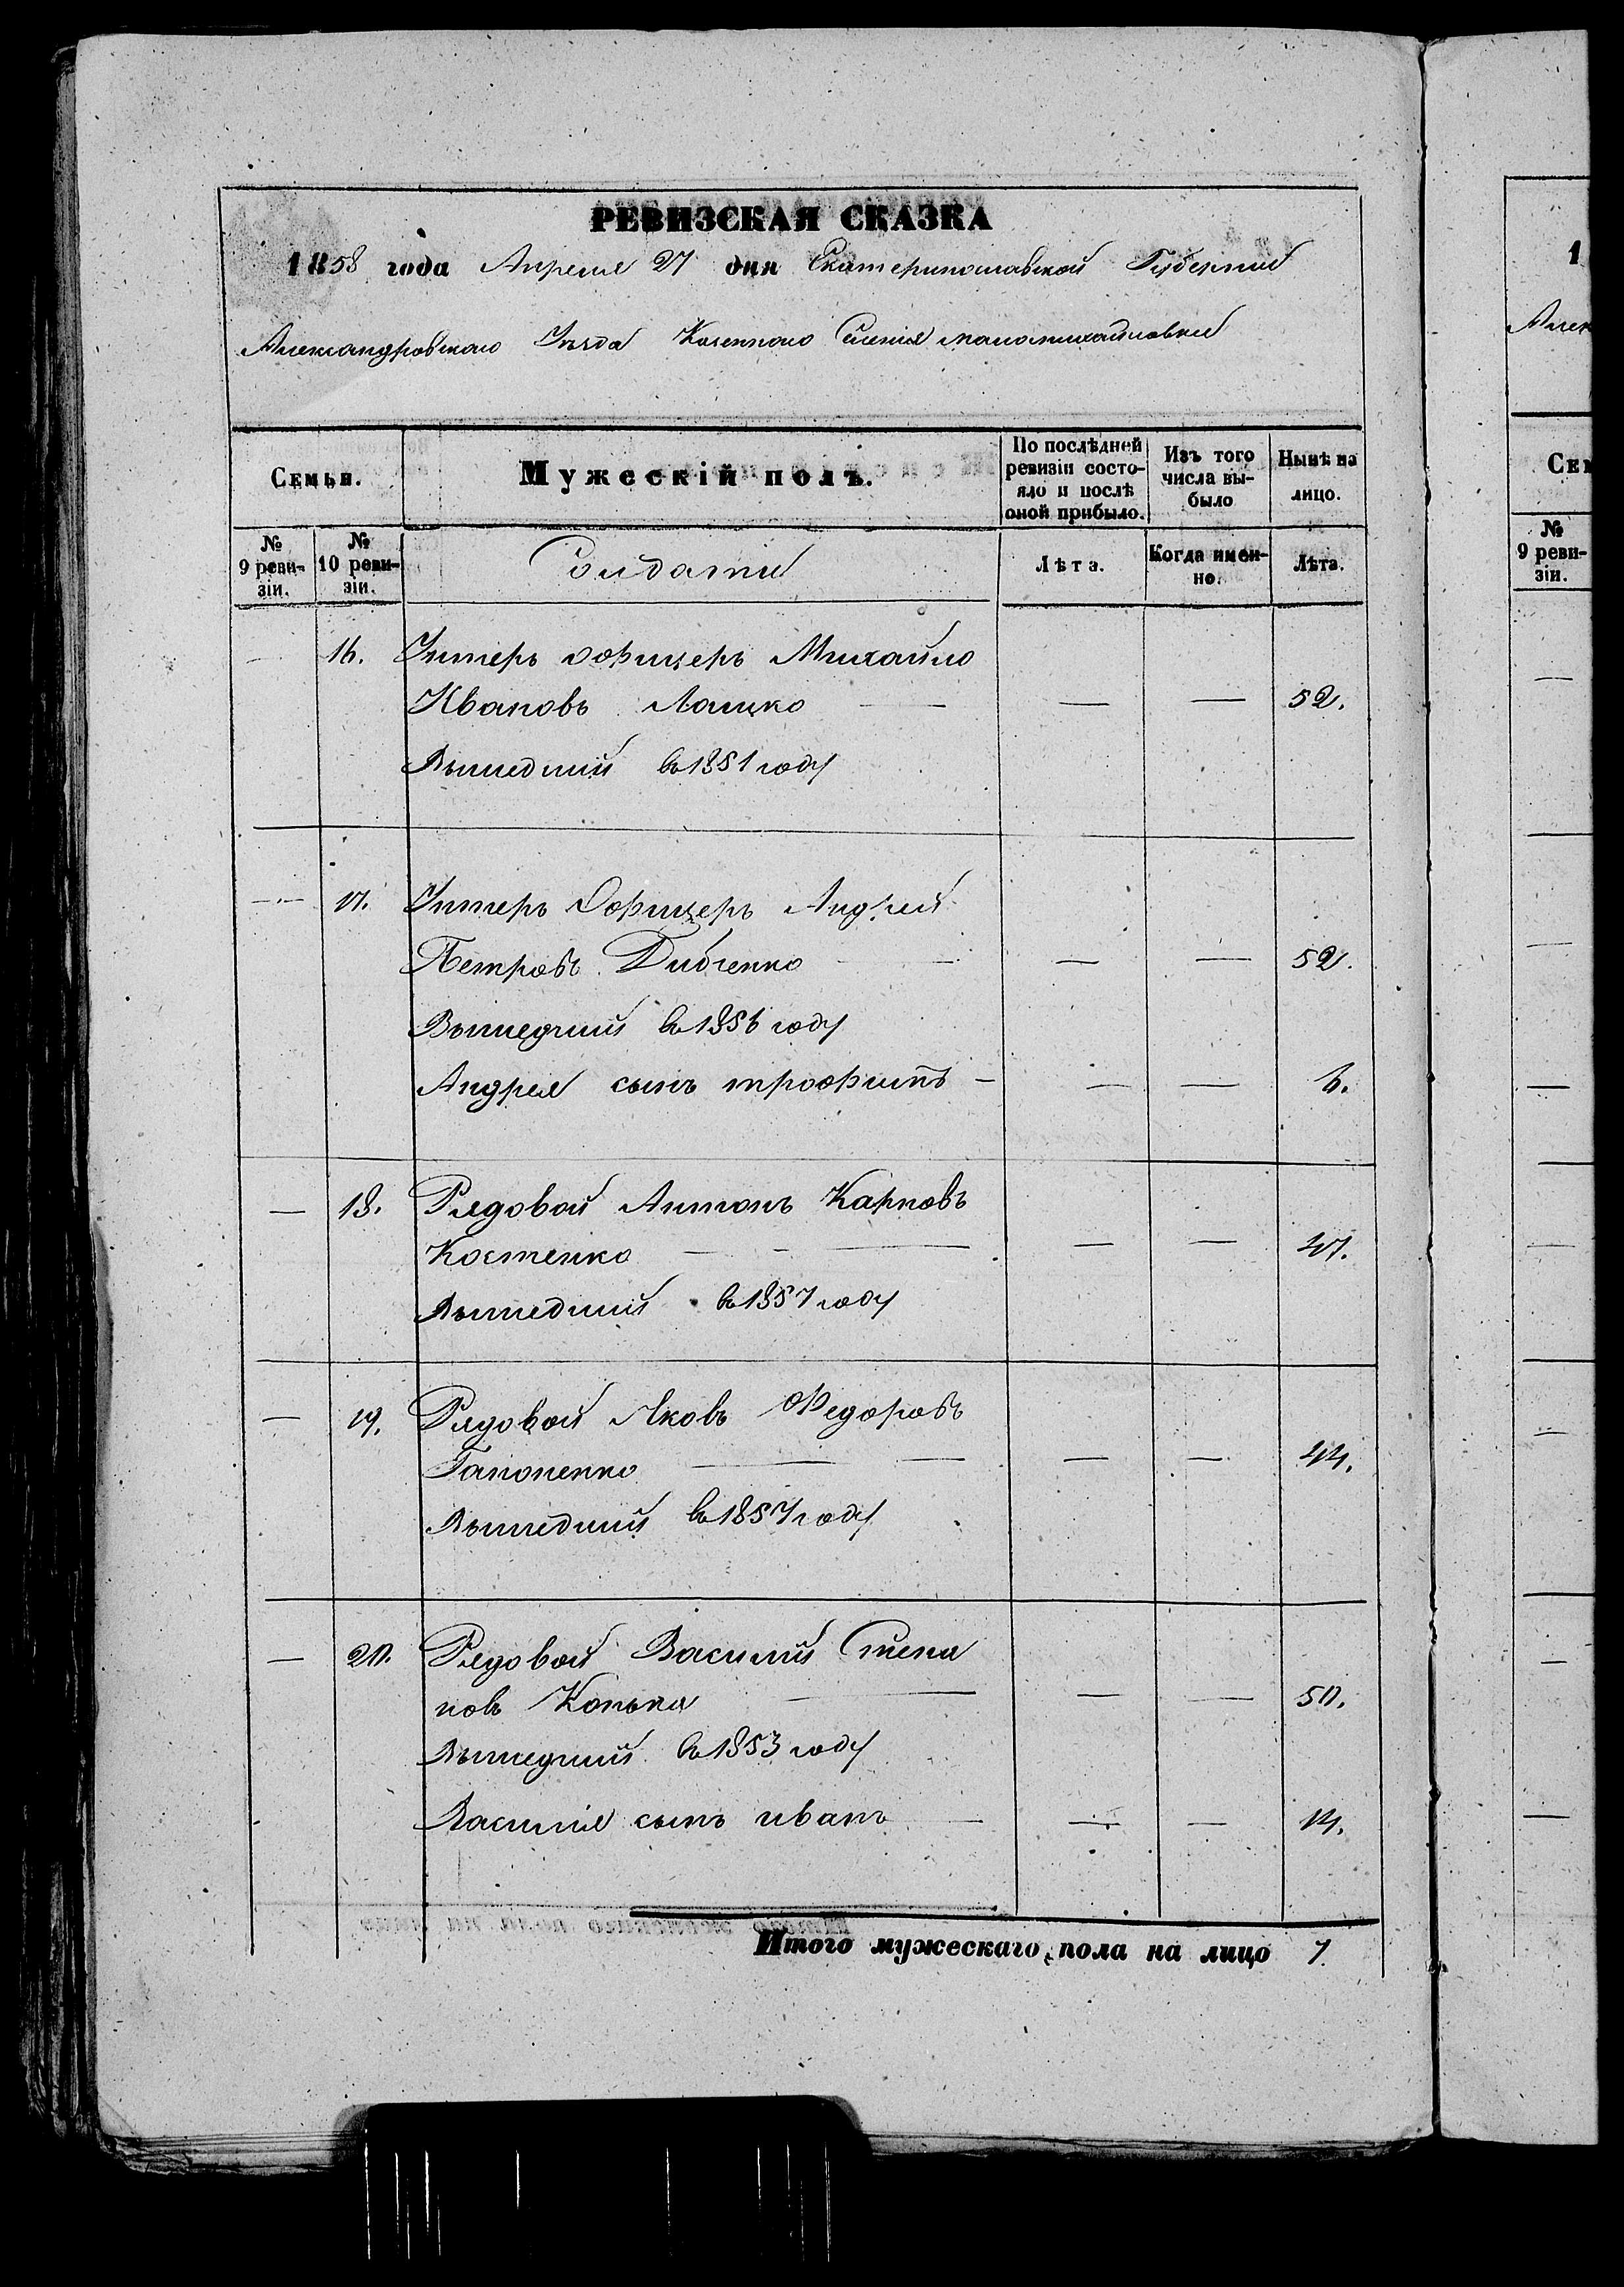 РЕВИЗСКАЯ СКАЗКА
1858 года Апреля 27 дня Екатеринославской Губернии
Александровского Уезда Казенного Селенія маломихайловки
Семьи.
Мужескій полъ.
По послѣдней ревизіи состо-
яло и послѣ оной прибыло.
Изъ того числа вы-
было
Нынѣ на лицо.
№ 9 реви-
зіи.
№ 10 реви-
зіи.
Солдаты
Лѣта.
Когда имен-
но.
Лѣта.
— 16. Унтеръ офицеръ Михайло
Ивановъ Лацко — — 52.
Вышедший въ 1851 году
— 17. Унтеръ Офицеръ Андрей
Петровъ Дибченко — — 52.
Вышедчий въ 1856 году
Андрея сынъ трофимъ — — — 6.
— 18. Рядовой Антонъ Карповъ
Костенко — — — 47.
Вышедший въ 1857 году
— 19. Рядовой Яковъ Федоровъ
Гапоненко — — — 44.
Вышедший въ 1857 году
— 20. Рядовой Василий Степа
новъ Конька — — — 50.
Вышедчий въ 1853 году
Василія сынъ иванъ — — — 14.
Итого мужескаго пола на лицо 7.
1
Алек
Сем
№ 9 реви-
зіи.